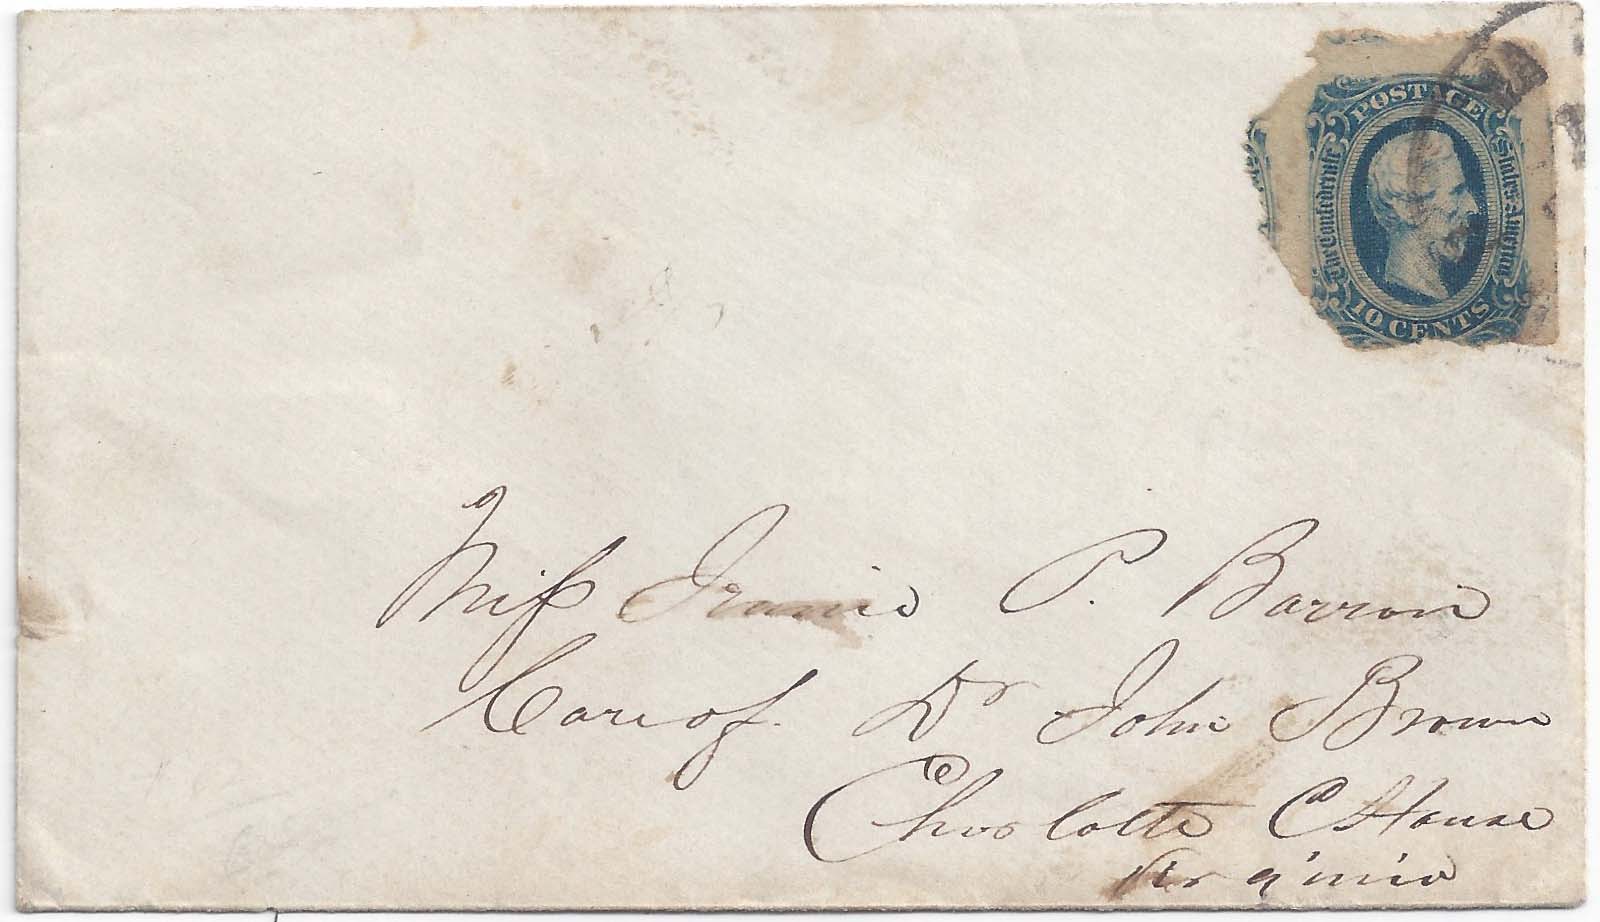 POSTAGE
The Confederate States of America
10 CENTS
VA
Miss Jennie P. Barron
Care of Dr John Brown
Charlotte C House
Virginia